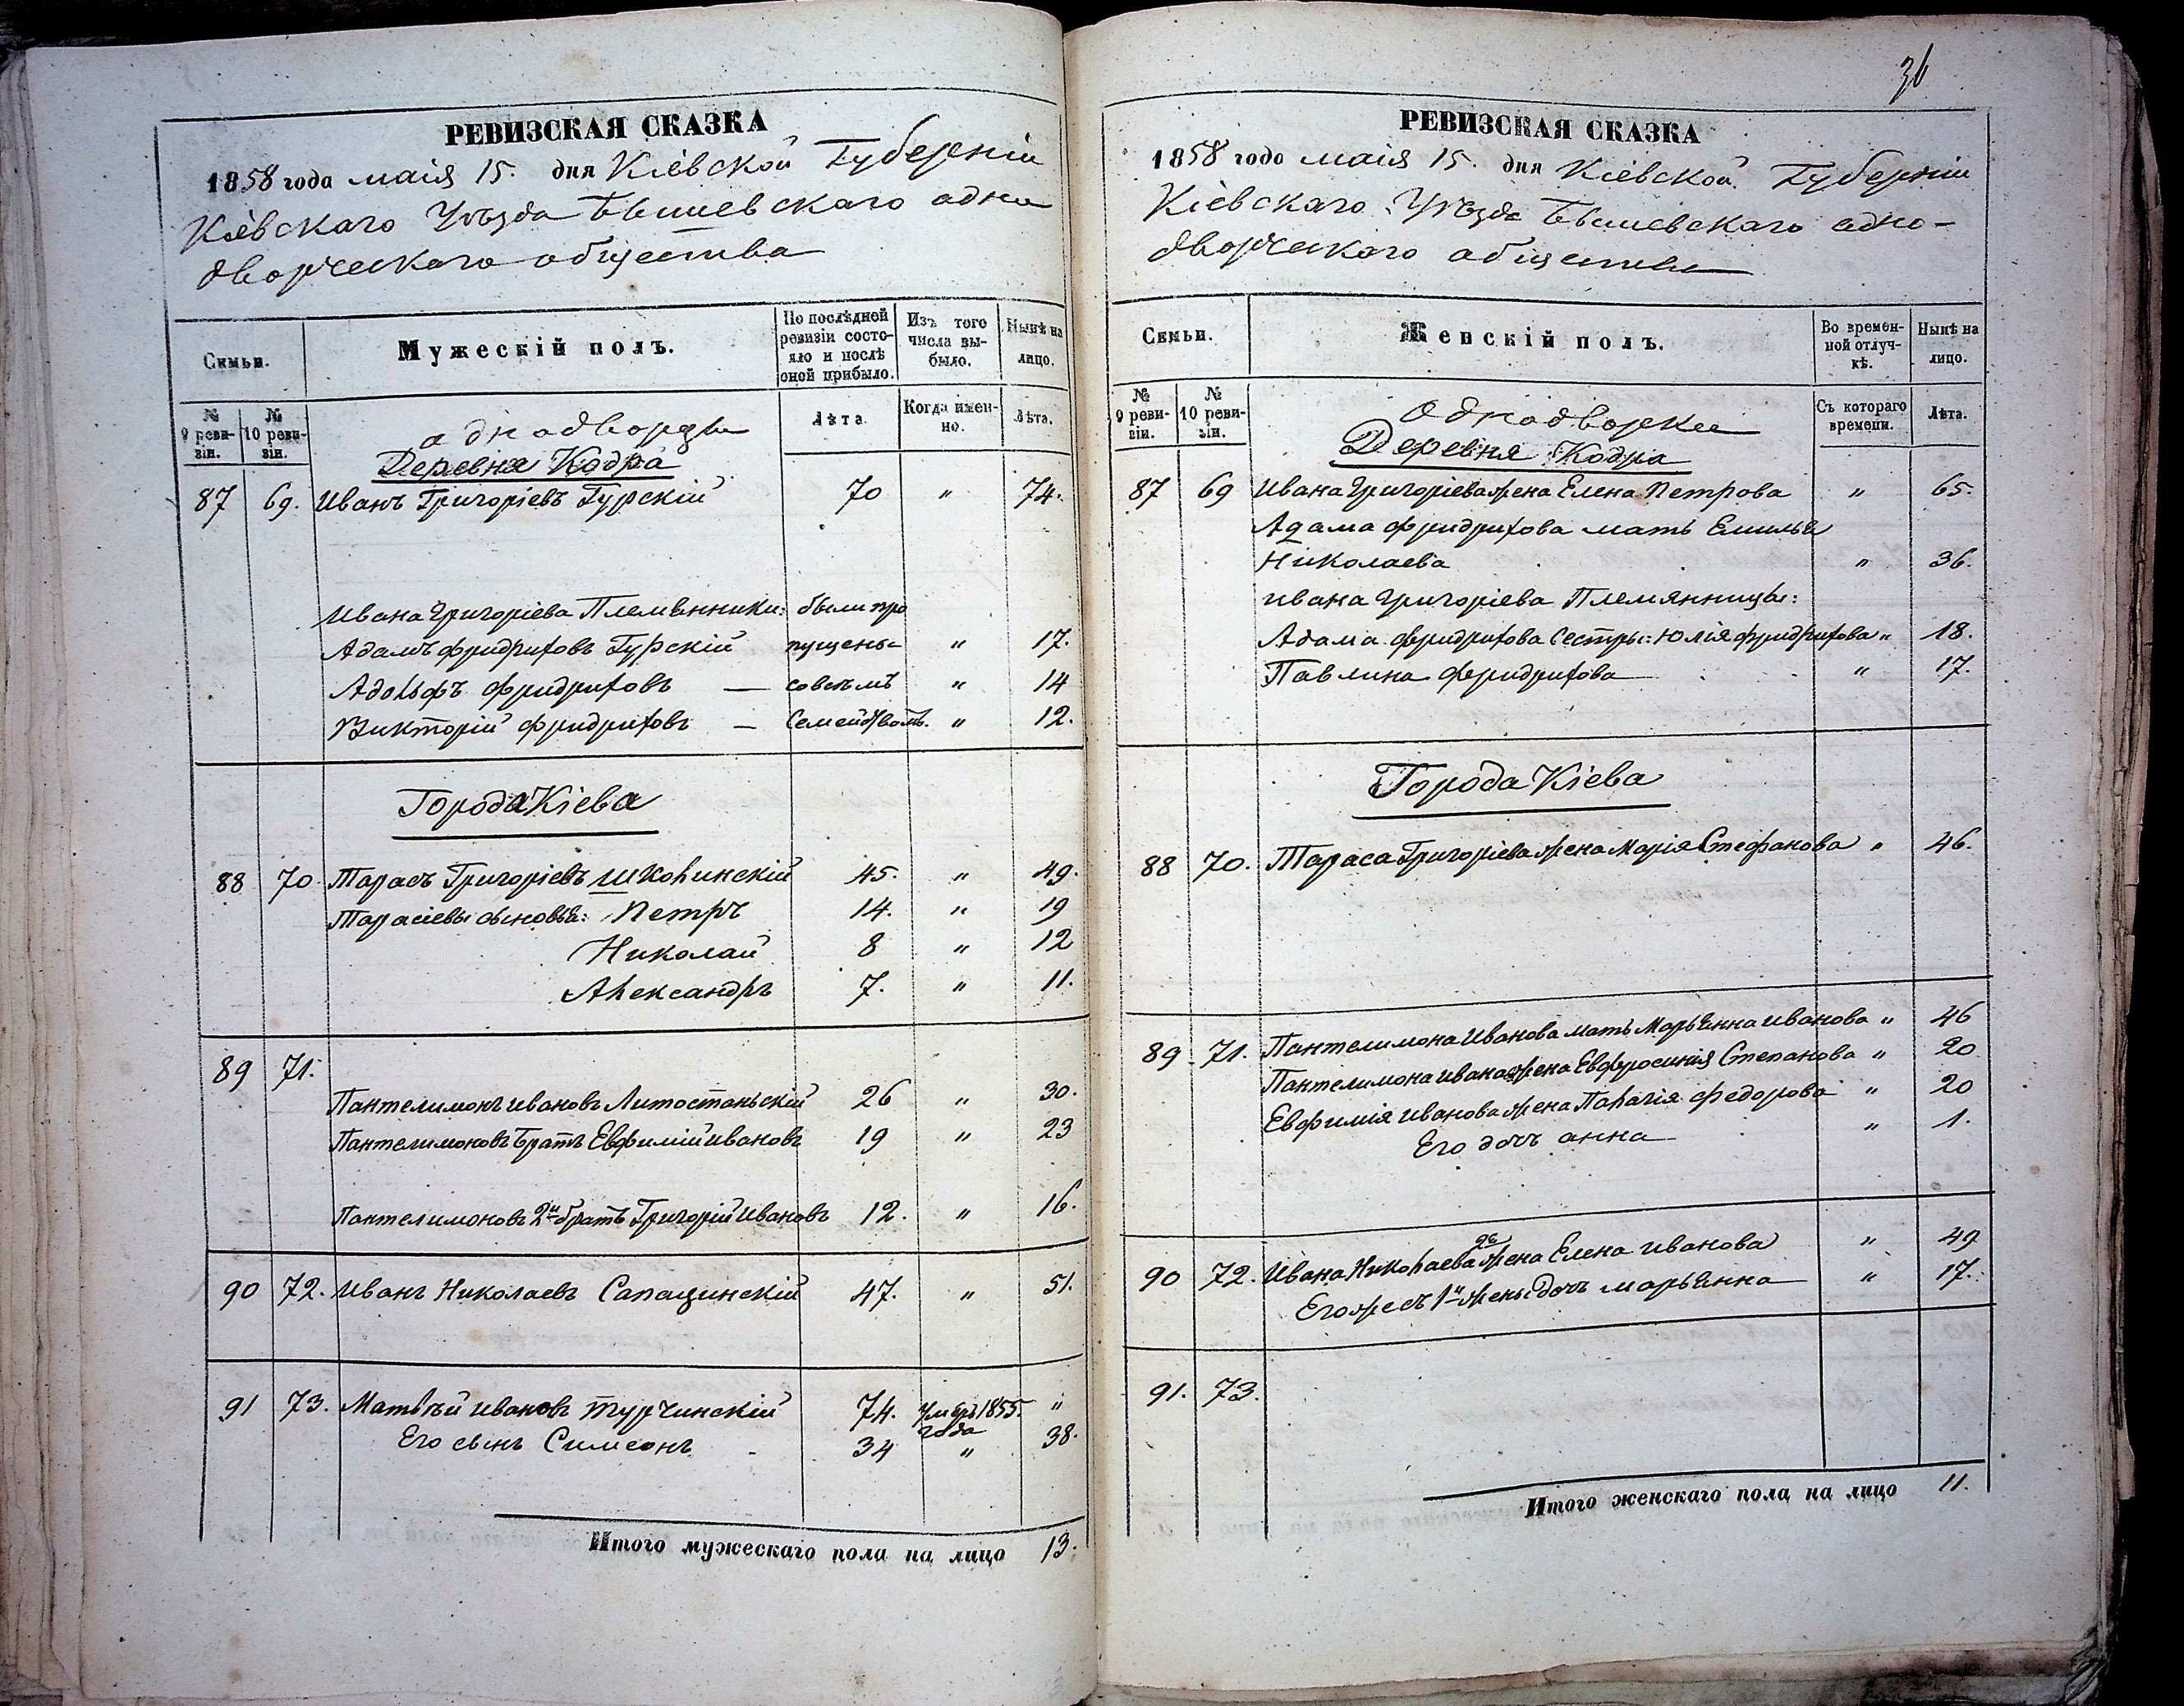 РЕВИЗСКАЯ СКАЗКА
1858 года маія 15. дня Кіевской Губерніи
Кіевскаго Уѣзда Бышевскаго одно
дворческаго общества
Семьи.
Мужескій полъ.
По послѣдней ревизіи состояло и послѣ оной прибыло.
Изъ того числа выбыло.
Нынѣ на лицо.
№ 9 ревизіи.
№ 10 ревизіи.
Лѣта
Когда именно.
Лѣта.
однодворцы
Деревня Кодра
87 69. Иванъ Григоріевъ Гурскій 70 " 74.
Ивана Григоріева Племянники: были про
Адамъ фридриховъ Гурскій пущены " 17.
Адольфъ фридриховъ — совсемъ " 14
Викторій фридриховъ — Семейством. " 12.
Города Кіева
88 70. Тарасъ Григоріевъ Школинскій 45. " 49.
Тарасіевы сыновья: Петръ 14. " 19
Николай 8 " 12
Александръ 7. " 11.
89 71.
Пантелимонъ Ивановъ Литостаньскій 26 " 30.
Пантелимоновъ братъ Евфимій Ивановъ 19 " 23
Пантелимоновъ 2й братъ Григорій Ивановъ 12. " 16.
90 72. Иванъ Николаевъ Сапацинскій 47. " 51.
91 73. Матвѣй Ивановъ Турчинскій 74. умеръ 1855. года "
Его сынъ Симеонъ 34 " 38.
Итого мужескаго пола на лицо 13.
36
РЕВИЗСКАЯ СКАЗКА
1858 года маія 15. дня Кіевской Губерніи
Кіевскаго Уѣзда Бышевскаго одно-
дворческаго общества
Семьи.
Женскій полъ.
Во временной отлучкѣ.
Нынѣ на лицо.
№ 9 ревизіи.
№ 10 ревизіи.
Съ котораго времени.
Лѣта.
Однодворки
Деревня Кодра
87 69 Ивана Григоріева жена Елена Петрова " 65.
Адама фридрихова мать Емилья
Николаева " 36.
Ивана Григоріева Племянницы:
Адама фридрихова Сестры: Юлія фридрихова " 18.
Павлина фридрихова " 17.
Города Кіева
88 70. Тараса Григоріева жена Марія Стефанова " 46.
89 71. Пантелимона Иванова мать Марьянна Иванова " 46
Пантелимона Иванова жена Евфросинія Степанова " 20
Евфимія Иванова жена Палагія Федорова " 20
Его дочь Анна " 1.
90 72. Ивана Николаева 2я жена Елена Иванова " 49
Его же съ 1й жены дочь Марьянна " 17.
91. 73.
Итого женскаго пола на лицо 11.